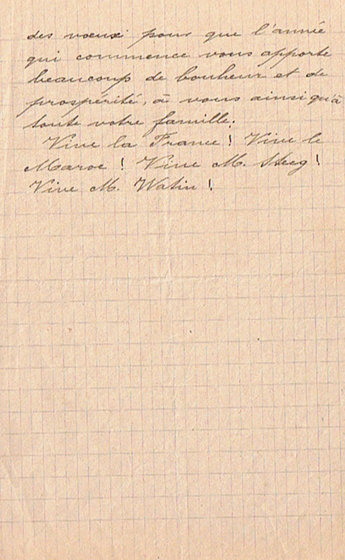 des vœux pour que l'année
qui commence vous apporte
beaucoup de bonheur et de
prospérité, à vous ainsi qu'à
toute votre famille.
Vive la France ! Vive le
Maroc ! Vive M. Steeg !
Vive M. Watin !